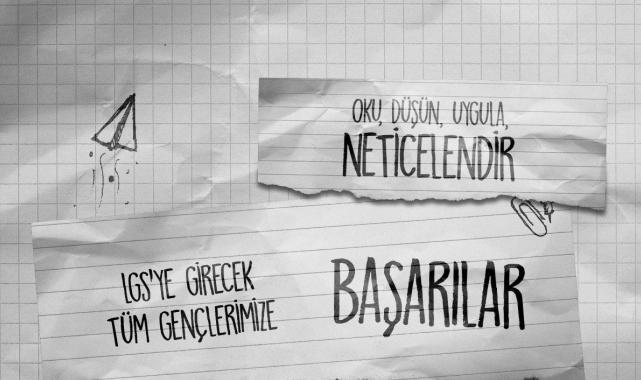 OKU, DÜŞÜN, UYGULA,
NETİCELENDİR
LGS'YE GİRECEK
TÜM GENÇLERİMİZE
BAŞARILAR